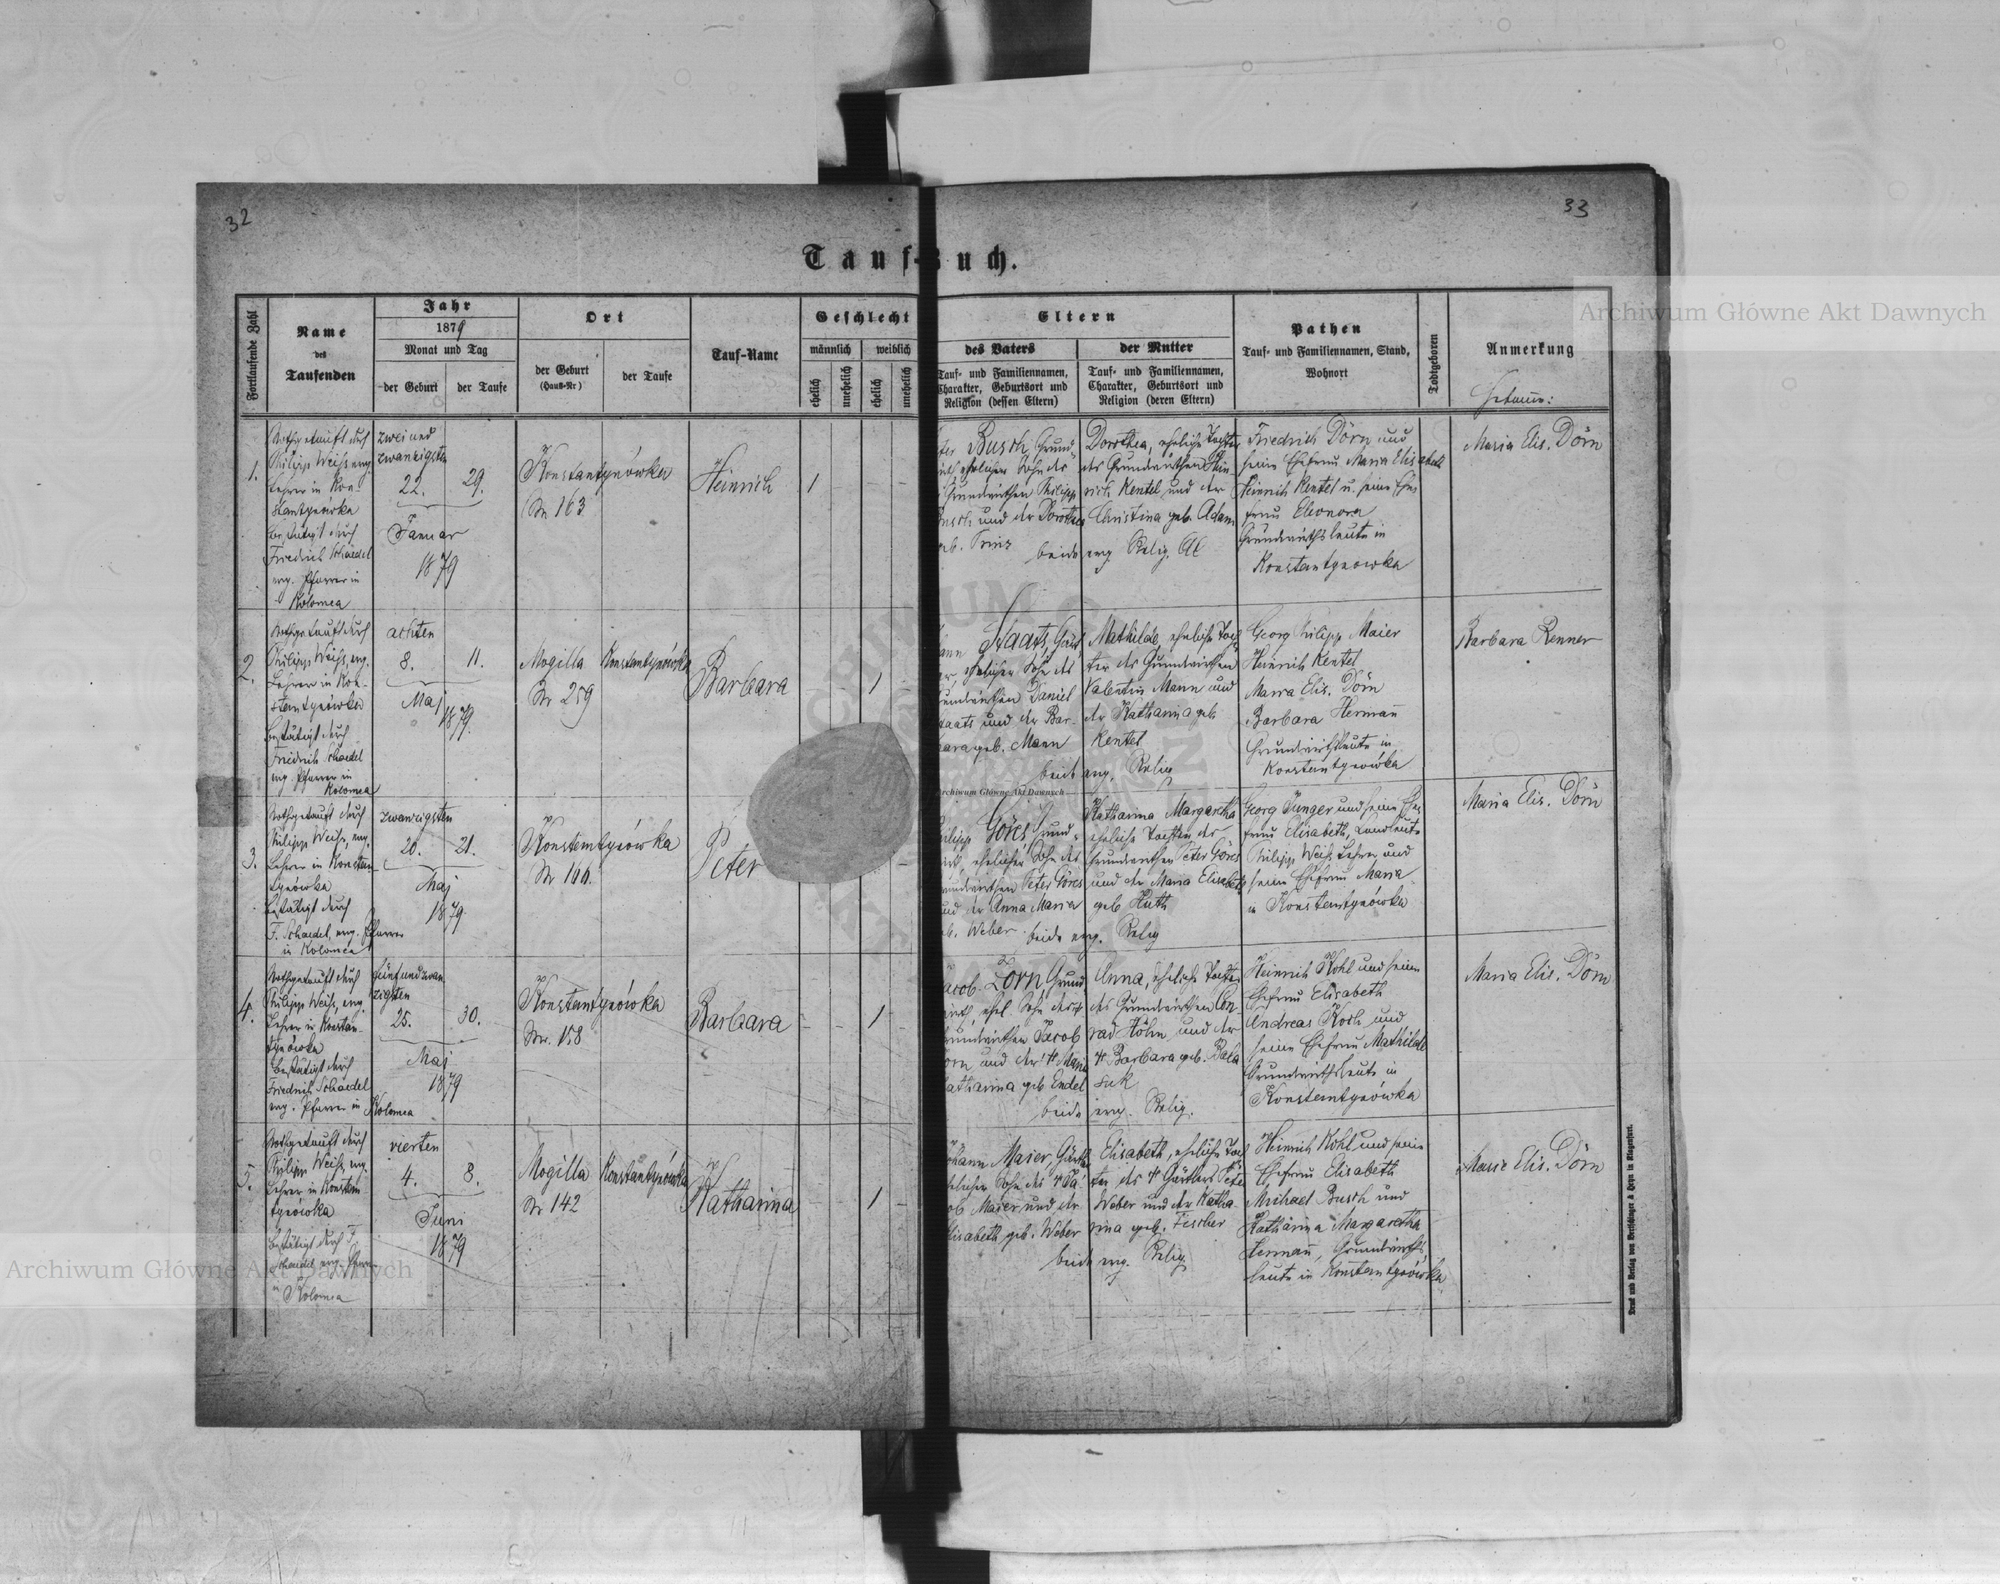 32
33
Tauf-Buch.
Fortlaufende Zahl
Name
des
Taufenden
Jahr
1879
Monat und Tag
der Geburt
der Taufe
Ort
der Geburt
(Haus-Nr)
der Taufe
Tauf-Name
Geschlecht
männlich
weiblich
ehelich
unehelich
ehelich
unehelich
Eltern
des Vaters
Tauf- und Familiennamen,
Charakter, Geburtsort und
Religion (dessen Eltern)
der Mutter
Tauf- und Familiennamen,
Charakter, Geburtsort und
Religion (deren Eltern)
Pathen
Tauf- und Familiennamen, Stand,
Wohnort
Todtgeboren
Anmerkung
Hebamme:
1.
Nothgetauft durch
Philipp Weiss, evg.
Lehrer in Kon-
stantynówka
bestätigt durch
Friedrich Schaedel
evg. Pfarrer in
Kolomea
zwei und
zwanzigsten
22.
29.
Januar
1879
Konstantynówka
Nr 163
Heinrich
1
Busch, Grund-
ehelicher Sohn des
Grundwirthen Philipp
Busch und der Dorothea
geb. Prinz
Dorothea, eheliche Tochter
des Grundwirthen Hein-
rich Kentel und der
Christina geb. Adam
beide evg. Relig. AC
Friedrich Dörn und
seine Ehefrau Maria Elisabeth
Heinrich Kentel u. seine Ehe-
frau Eleonora
Grundwirthsleute in
Konstantynowka
Maria Elis. Dörn
2.
Nothgetauft durch
Philipp Weiss, evg.
Lehrer in Kon-
stantynówka
bestätigt durch
Friedrich Schaedel
evg. Pfarrer in
Kolomea
achten
8.
11.
Maj
1879.
Mogilla
Nr 259
Konstantynówka
Barbara
1
Staats, Gärt-
ehelicher Sohn des
Grundwirthen Daniel
Staats und der Bar-
bara geb. Mann
Mathilde, eheliche Toch-
ter des Grundwirthen
Valentin Mann und
der Katharina geb.
Kentel
beide evg. Relig
Georg Philipp Maier
Heinrich Kentel
Maria Elis. Dörn
Barbara Hermann
Grundwirthsleute in
Konstantynówka
Barbara Renner
3.
Nothgetauft durch
Philipp Weiss, evg.
Lehrer in Konstan-
tynówka
bestätigt durch
F. Schaedel, evg. Pfarrer
in Kolomea
zwanzigsten
20.
21.
Maj
1879.
Konstantynówka
Nr 166.
Peter
Philipp Göres, Grund-
wirth, ehelicher Sohn des
Grundwirthen Peter Göres
und der Anna Maria
geb. Weber
Katharina Margaretha
eheliche Tochter des
Grundwirthen Peter Göres
und der Maria Elisabeth
geb Huth
beide evg. Relig
Georg Junger und seine Ehe-
frau Elisabeth, Landleute
Philipp Weiss Lehrer und
seine Ehefrau Maria
in Konstantynówka
Maria Elis. Dörn
4.
Nothgetauft durch
Philipp Weiss, evg.
Lehrer in Konstan-
tynówka
bestätigt durch
Friedrich Schaedel
evg. Pfarrer in Kolomea
fünf und zwan-
zigsten
25.
30.
Maj
1879
Konstantynówka
Nr. 158
Barbara
1
Jacob Zorn Grund-
wirth, ehel. Sohn des
Grundwirthen Jacob
Zorn und der Maria
Katharina geb Endel
Anna, eheliche Tochter
des Grundwirthen Con-
rad Höhn und der
Barbara geb.
beide evg. Relig.
Heinrich Kohl und seine
Ehefrau Elisabeth
Andreas Koch und
seine Ehefrau Mathilde
Grundwirthsleute in
Konstantynówka
Maria Elis. Dörn
5.
Nothgetauft durch
Philipp Weiss, evg.
Lehrer in Konstan-
tynówka
bestätigt durch F.
Schaedel, evg. Pfarrer
in Kolomea
vierten
4.
8.
Juni
1879
Mogilla
Nr 142
Konstantynówka
Katharina
1
Johann Maier, Gärtler
ehelicher Sohn des Ja-
cob Maier und der
Elisabeth geb. Weber
Elisabeth, eheliche Toch-
ter des Gärtlers Peter
Weber und der Katha-
rina geb. Fischer
beide evg. Relig
Heinrich Kohl und seine
Ehefrau Elisabeth
Michael Busch und
Katharina Margaretha
Hermann, Grundwirths-
leute in Konstantynówka
Marie Elis. Dörn
Druck und Verlag von Bertschinger & Heyn in Klagenfurt.
Archiwum Główne Akt Dawnych
Archiwum Główne Akt Dawnych
Archiwum Główne Akt Dawnych